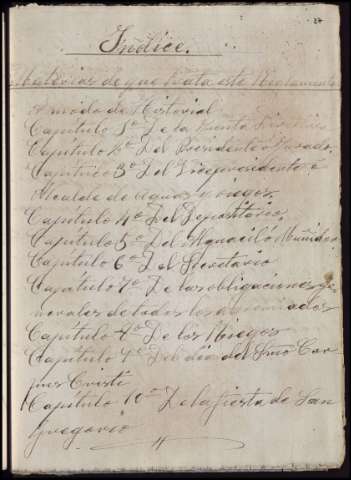 Indice.
Materias de que trata este Reglamento
A modo de Historial
Capitulo 1º De la Junta Directiva
Capitulo 2º Del Presidente o Jurado
Capitulo 3º Del Vicepresidente o
Alcalde de Aguas y riegos.
Capitulo 4º Del Depositario.
Capitulo 5º Del Alguacil ó Muñidor
Capitulo 6º Del Secretario
Capitulo 7º De las obligaciones ge
nerales de todos los agremiados
Capitulo 8º De los Riegos
Capitulo 9º Del dia del Smo Cor
pus Cristi
Capitulo 10º De la fiesta de San
Gregorio